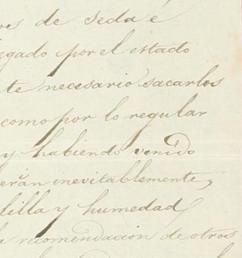 res de seda é
egado por el estado
te necesario sacarlos
como por lo regular
y habiendo venido
erán inevitablemente,
lilla y humedad,
la recomendacion de otros